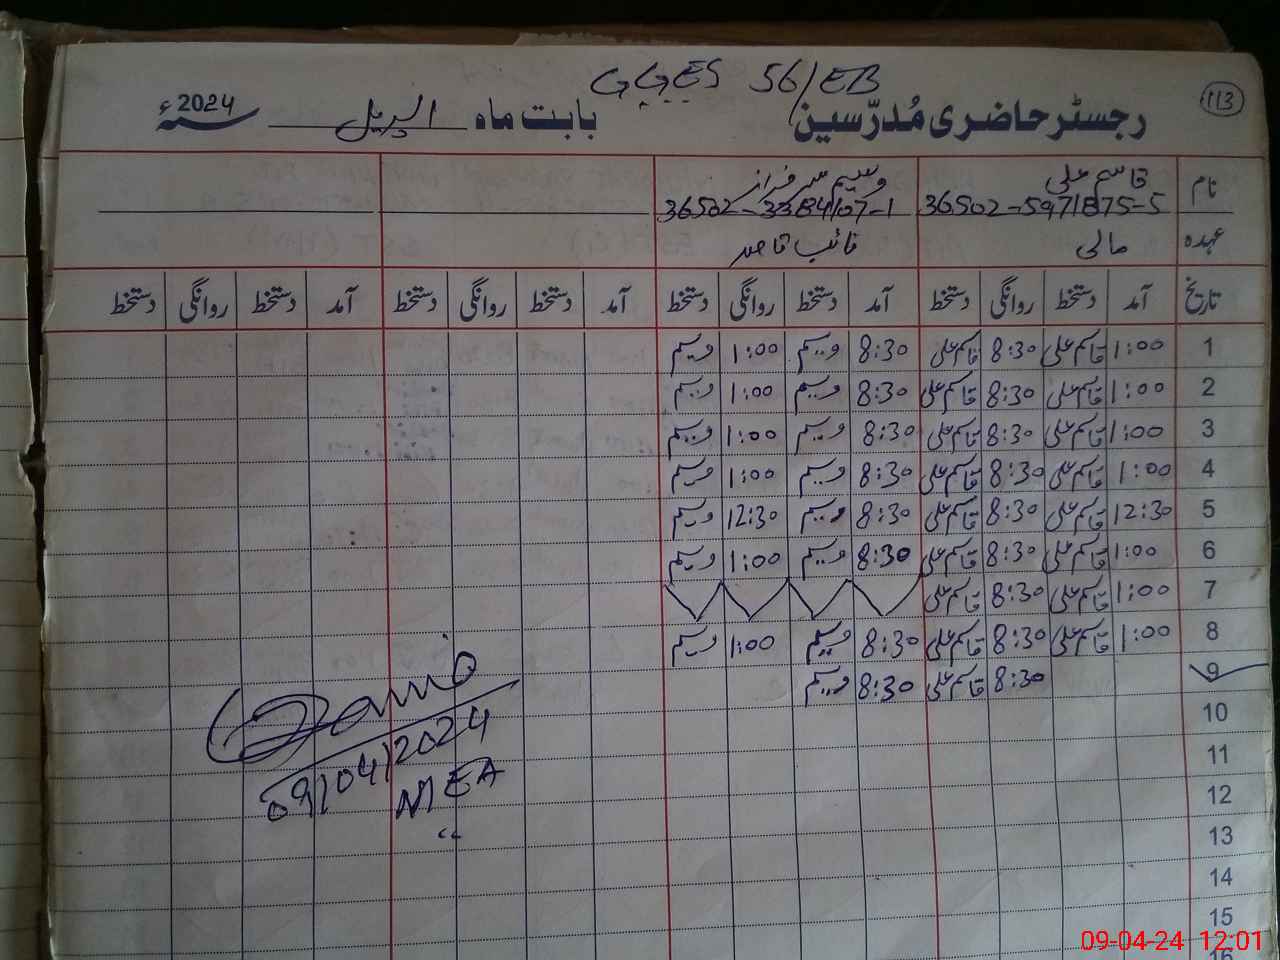 GGES 56/EB
113
رجسٹر حاضری مُدرّسین بابت ماہ اپریل سنہ 2024ء
نام قاسم علی وسیم سرفراز
36502-5971875-5 36502-3384107-1
عہدہ مالی نائب قاصد
تاریخ آمد دستخط روانگی دستخط آمد دستخط روانگی دستخط آمد دستخط روانگی دستخط آمد دستخط روانگی دستخط
1 1:00 قاسم علی 8:30 قاسم علی 8:30 وسیم 1:00 وسیم
2 1:00 قاسم علی 8:30 قاسم علی 8:30 وسیم 1:00 وسیم
3 1:00 قاسم علی 8:30 قاسم علی 8:30 وسیم 1:00 وسیم
4 1:00 قاسم علی 8:30 قاسم علی 8:30 وسیم 1:00 وسیم
5 12:30 قاسم علی 8:30 قاسم علی 8:30 وسیم 12:30 وسیم
6 1:00 قاسم علی 8:30 قاسم علی 8:30 وسیم 1:00 وسیم
7 1:00 قاسم علی 8:30 قاسم علی
8 1:00 قاسم علی 8:30 قاسم علی 8:30 وسیم 1:00 وسیم
9 8:30 قاسم علی 8:30 وسیم
10
11
12
13
14
15
16
09/04/2024
MEA
09-04-24 12:01